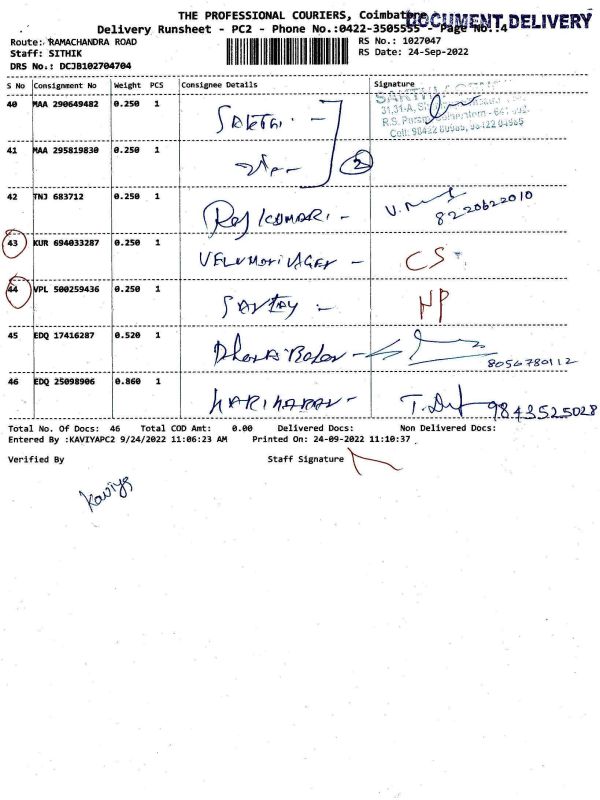 THE PROFESSIONAL COURIERS, Coimbat
DOCUMENT DELIVERY
Delivery Runsheet - PC2 - Phone No.:0422-3505555 - Page No.:4
Route: RAMACHANDRA ROAD
RS No.: 1027047
Staff: SITHIK
RS Date: 24-Sep-2022
DRS No.: DCJB102704704
S No Consignment No Weight PCS Consignee Details Signature
40 MAA 290649482 0.250 1 SAKTHI -
41 MAA 295819830 0.250 1 2
42 TNJ 683712 0.250 1 RAJKUMAR. - 8220622010
43 KUR 694033287 0.250 1 - CS
44 VPL 500259436 0.250 1 SANJAY - NP
45 EDQ 17416287 0.520 1 - 8056780112
46 EDQ 25098906 0.860 1 HARIHARAN - 9843525028
Total No. Of Docs: 46 Total COD Amt: 0.00 Delivered Docs: Non Delivered Docs:
Entered By :KAVIYAPC2 9/24/2022 11:06:23 AM Printed On: 24-09-2022 11:10:37
Verified By Staff Signature
Kaviya